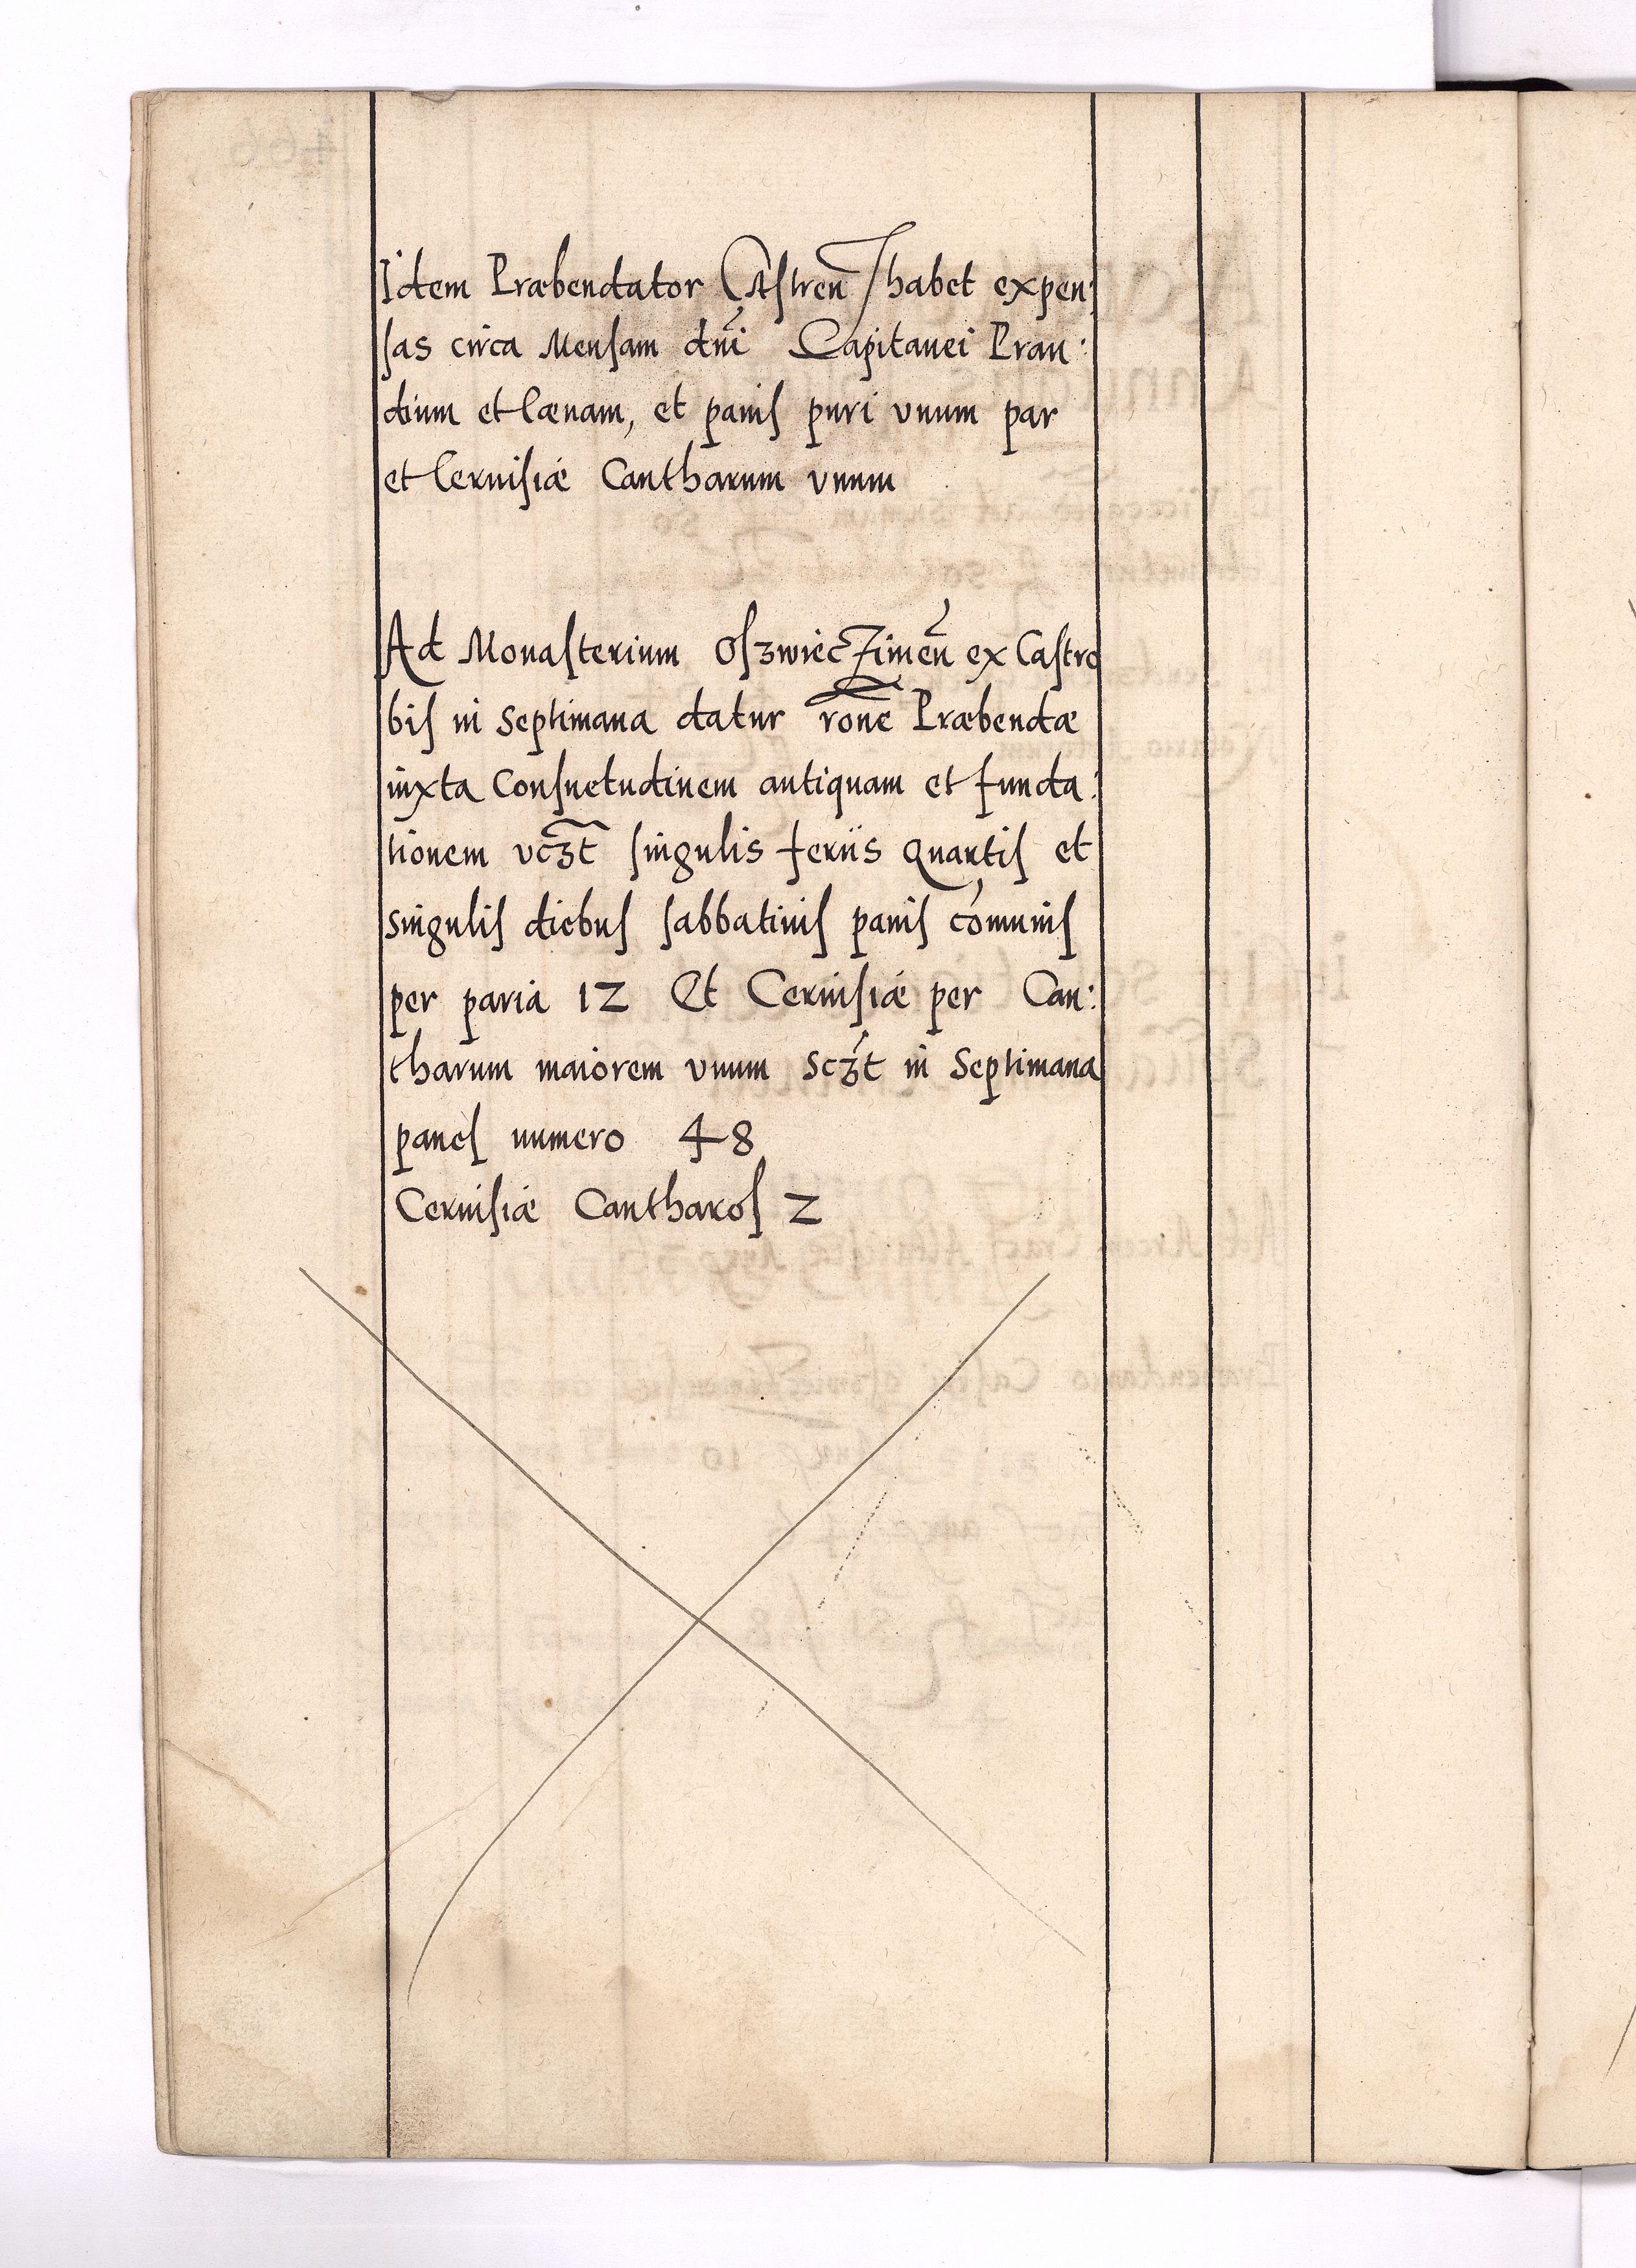 Idem Præbendator Castren̄ habet expen:
sas circa Mensam dn̄i Capitanei Pran:
dium et Cænam, et panis puri vnum par
et Cervisiæ Cantharum vnum
Ad Monasterium Oszwieczimen̄ ex Castro
bis in Septimana datur rone̅ Præbendæ
iuxta Consuetudinem antiquam et funda:
tionem vcꝫt singulis feriis quartis et
singulis diebus sabbatinis panis com̄unis
per paria 12 Et Ceruisiæ per Can:
tharum maiorem vnum scꝫt in Septimana
panes numero 48
Ceruisiæ Cantharos 2